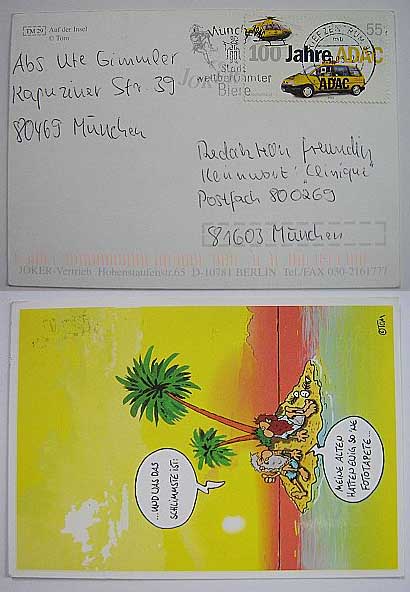 TM 29 Auf der Insel
© Tom
Abs Ute Gimmler
Kapuziner Str. 39
80469 München
München
Stadt
weltberühmter
Biere
JOKER
100 Jahre ADAC
55
ADAC
Redaktion freundin
Kennwort "Clinique"
Postfach 800269
81603 München
JOKER-Vertrieb Hohenstaufenstr.65 D-10781 BERLIN Tel./FAX 030-2161777
©TOM
MEINE ALTEN
HATTEN EWIG SO 'NE
FOTOTAPETE...
...UND WAS DAS
SCHLIMMSTE IST: